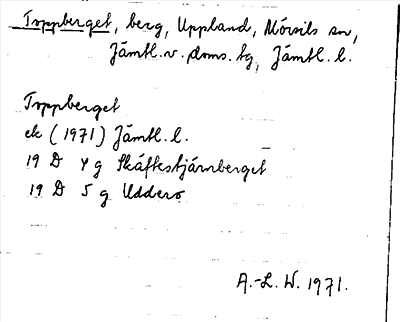 Toppberget, berg, Uppland, Mörsils sn,
Jämtl. v. doms. tg, Jämtl. l.
Toppberget
ek (1971) Jämtl. l.
19 D 4 g Skäftestjärnberget
19 D 5 g Udderö
A.-L. W. 1971.